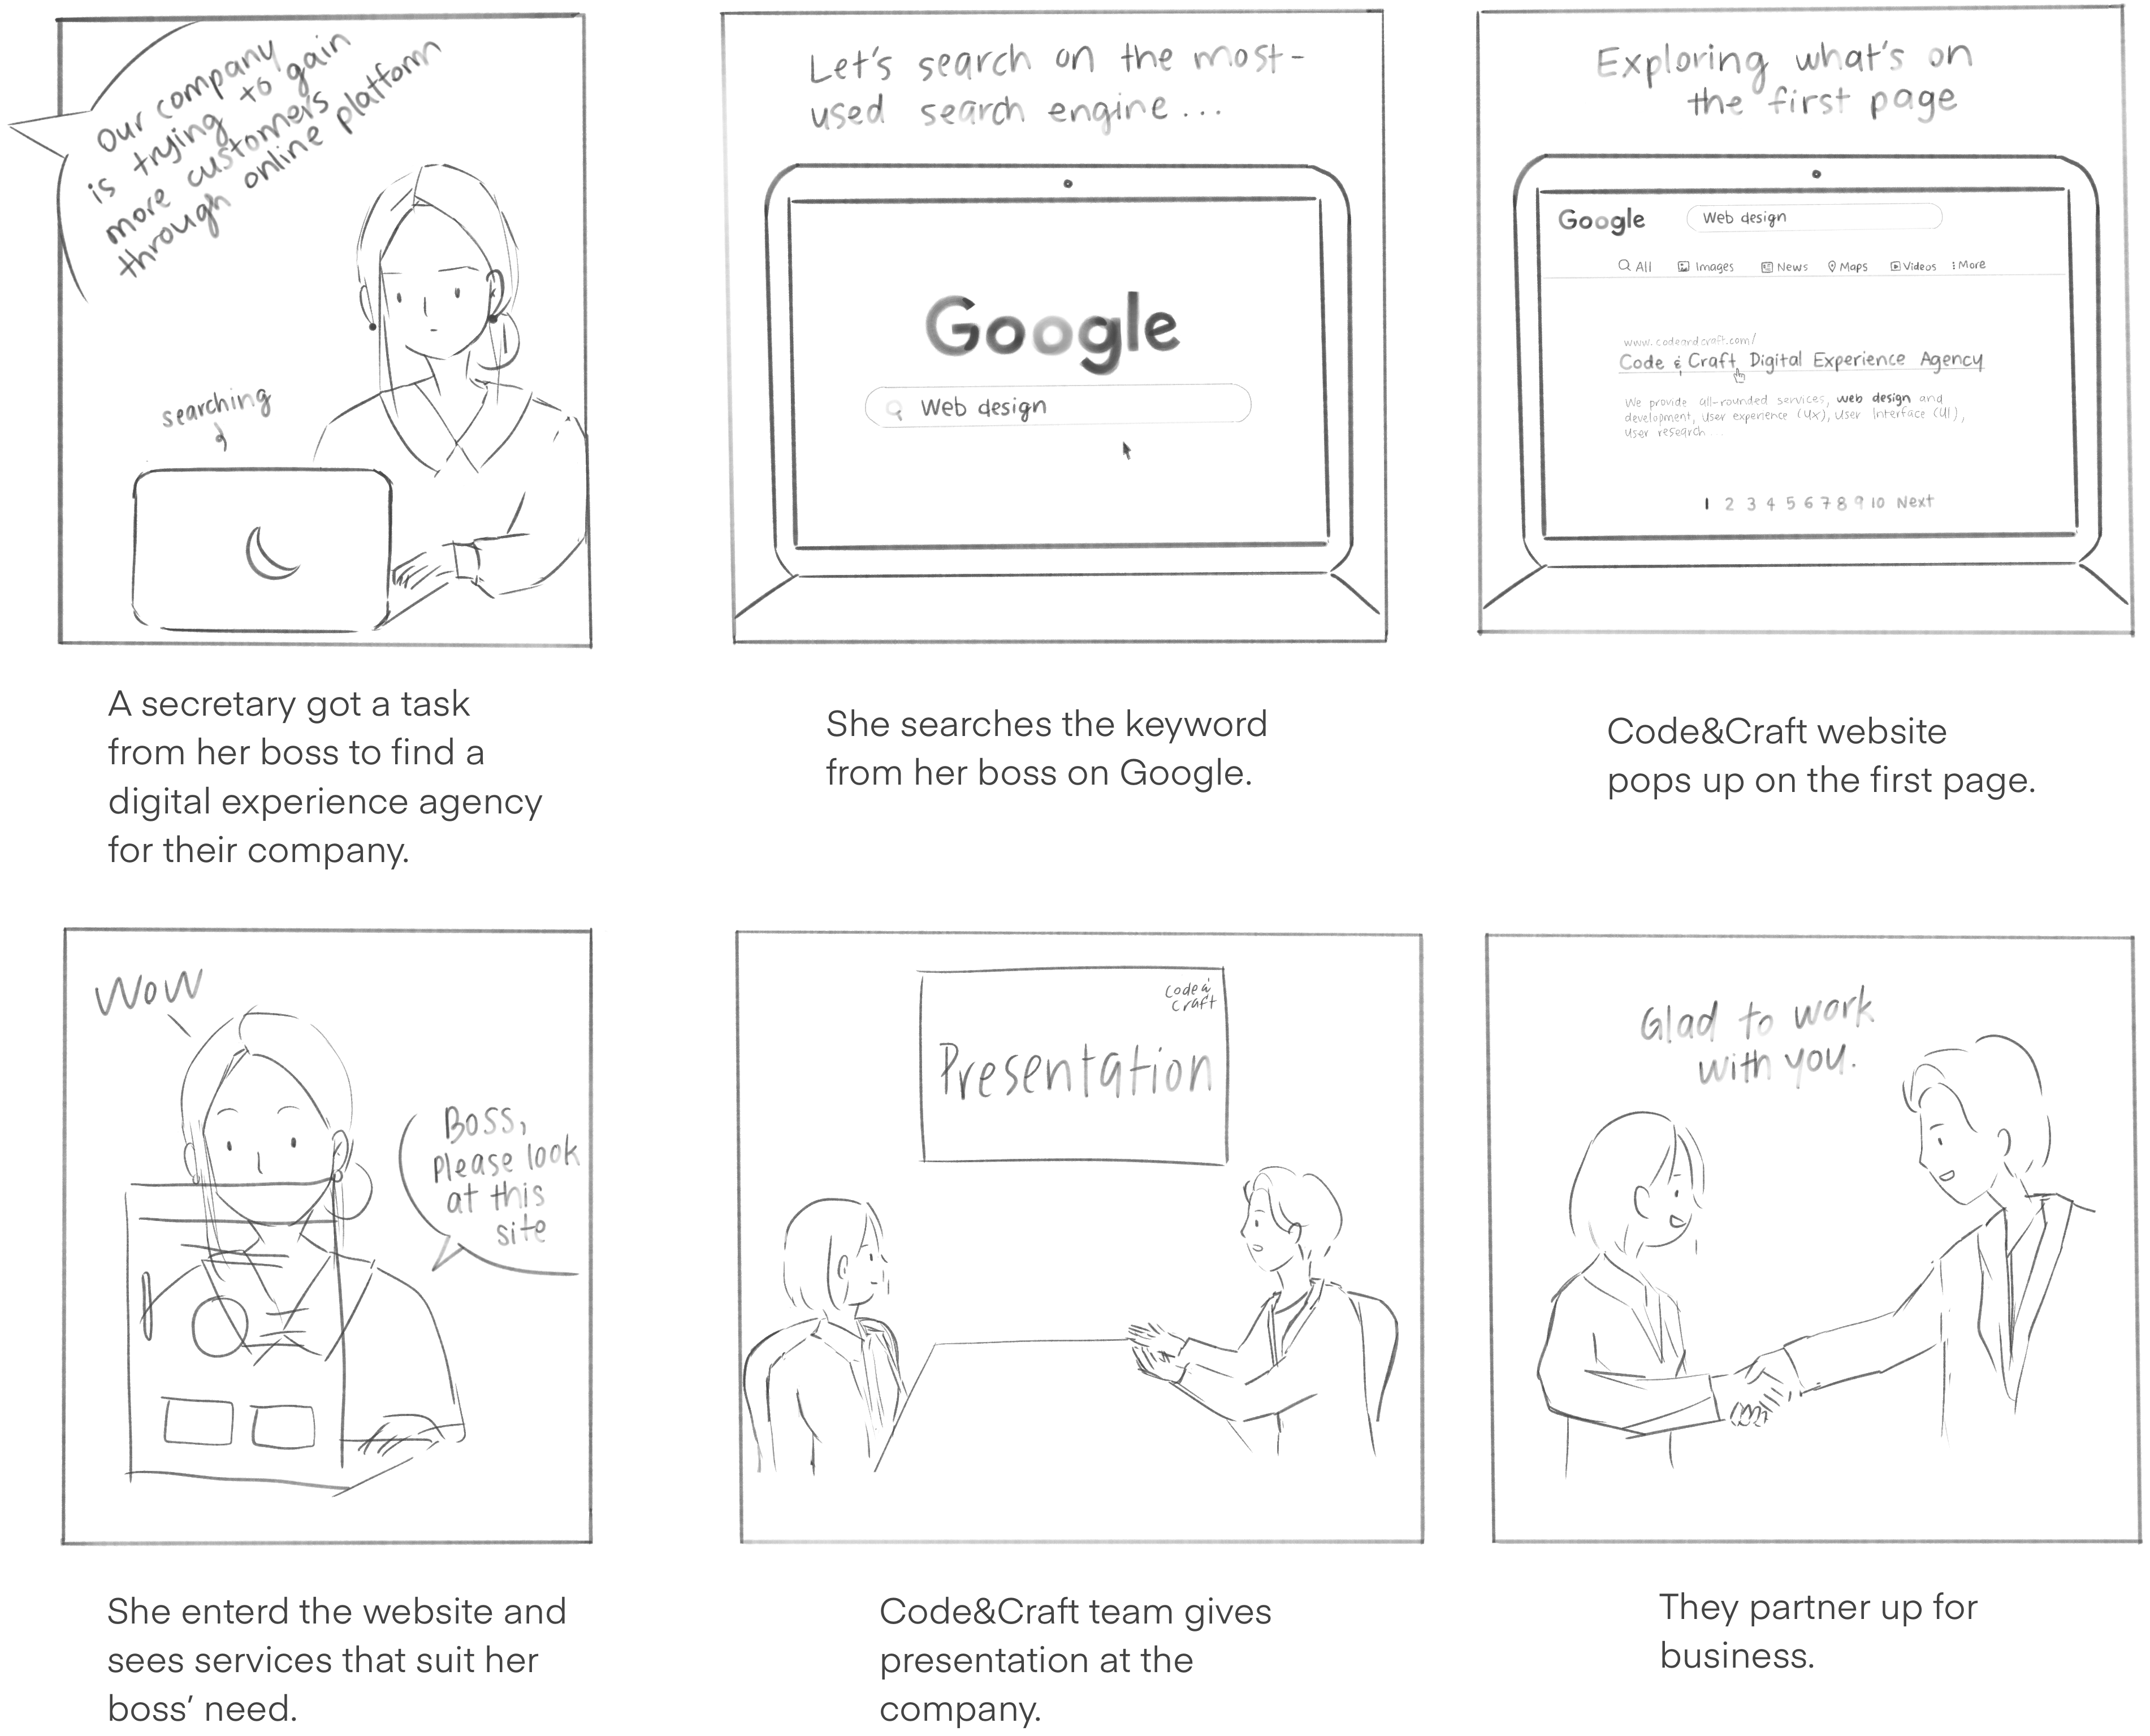 our company
is trying to gain
more customers
through online platform
searching
A secretary got a task
from her boss to find a
digital experience agency
for their company.
Let's search on the most-
used search engine...
Google
Web design
She searches the keyword
from her boss on Google.
Exploring what's on
the first page
Google Web design
All Images News Maps Videos More
www.codeandcraft.com/
Code & Craft Digital Experience Agency
We provide all-rounded services, web design and
development, user experience (UX), User Interface (UI),
User research...
1 2 3 4 5 6 7 8 9 10 Next
Code&Craft website
pops up on the first page.
WOW
BOSS,
please look
at this
site
She enterd the website and
sees services that suit her
boss' need.
code &
craft
Presentation
Code&Craft team gives
presentation at the
company.
Glad to work
with you.
They partner up for
business.